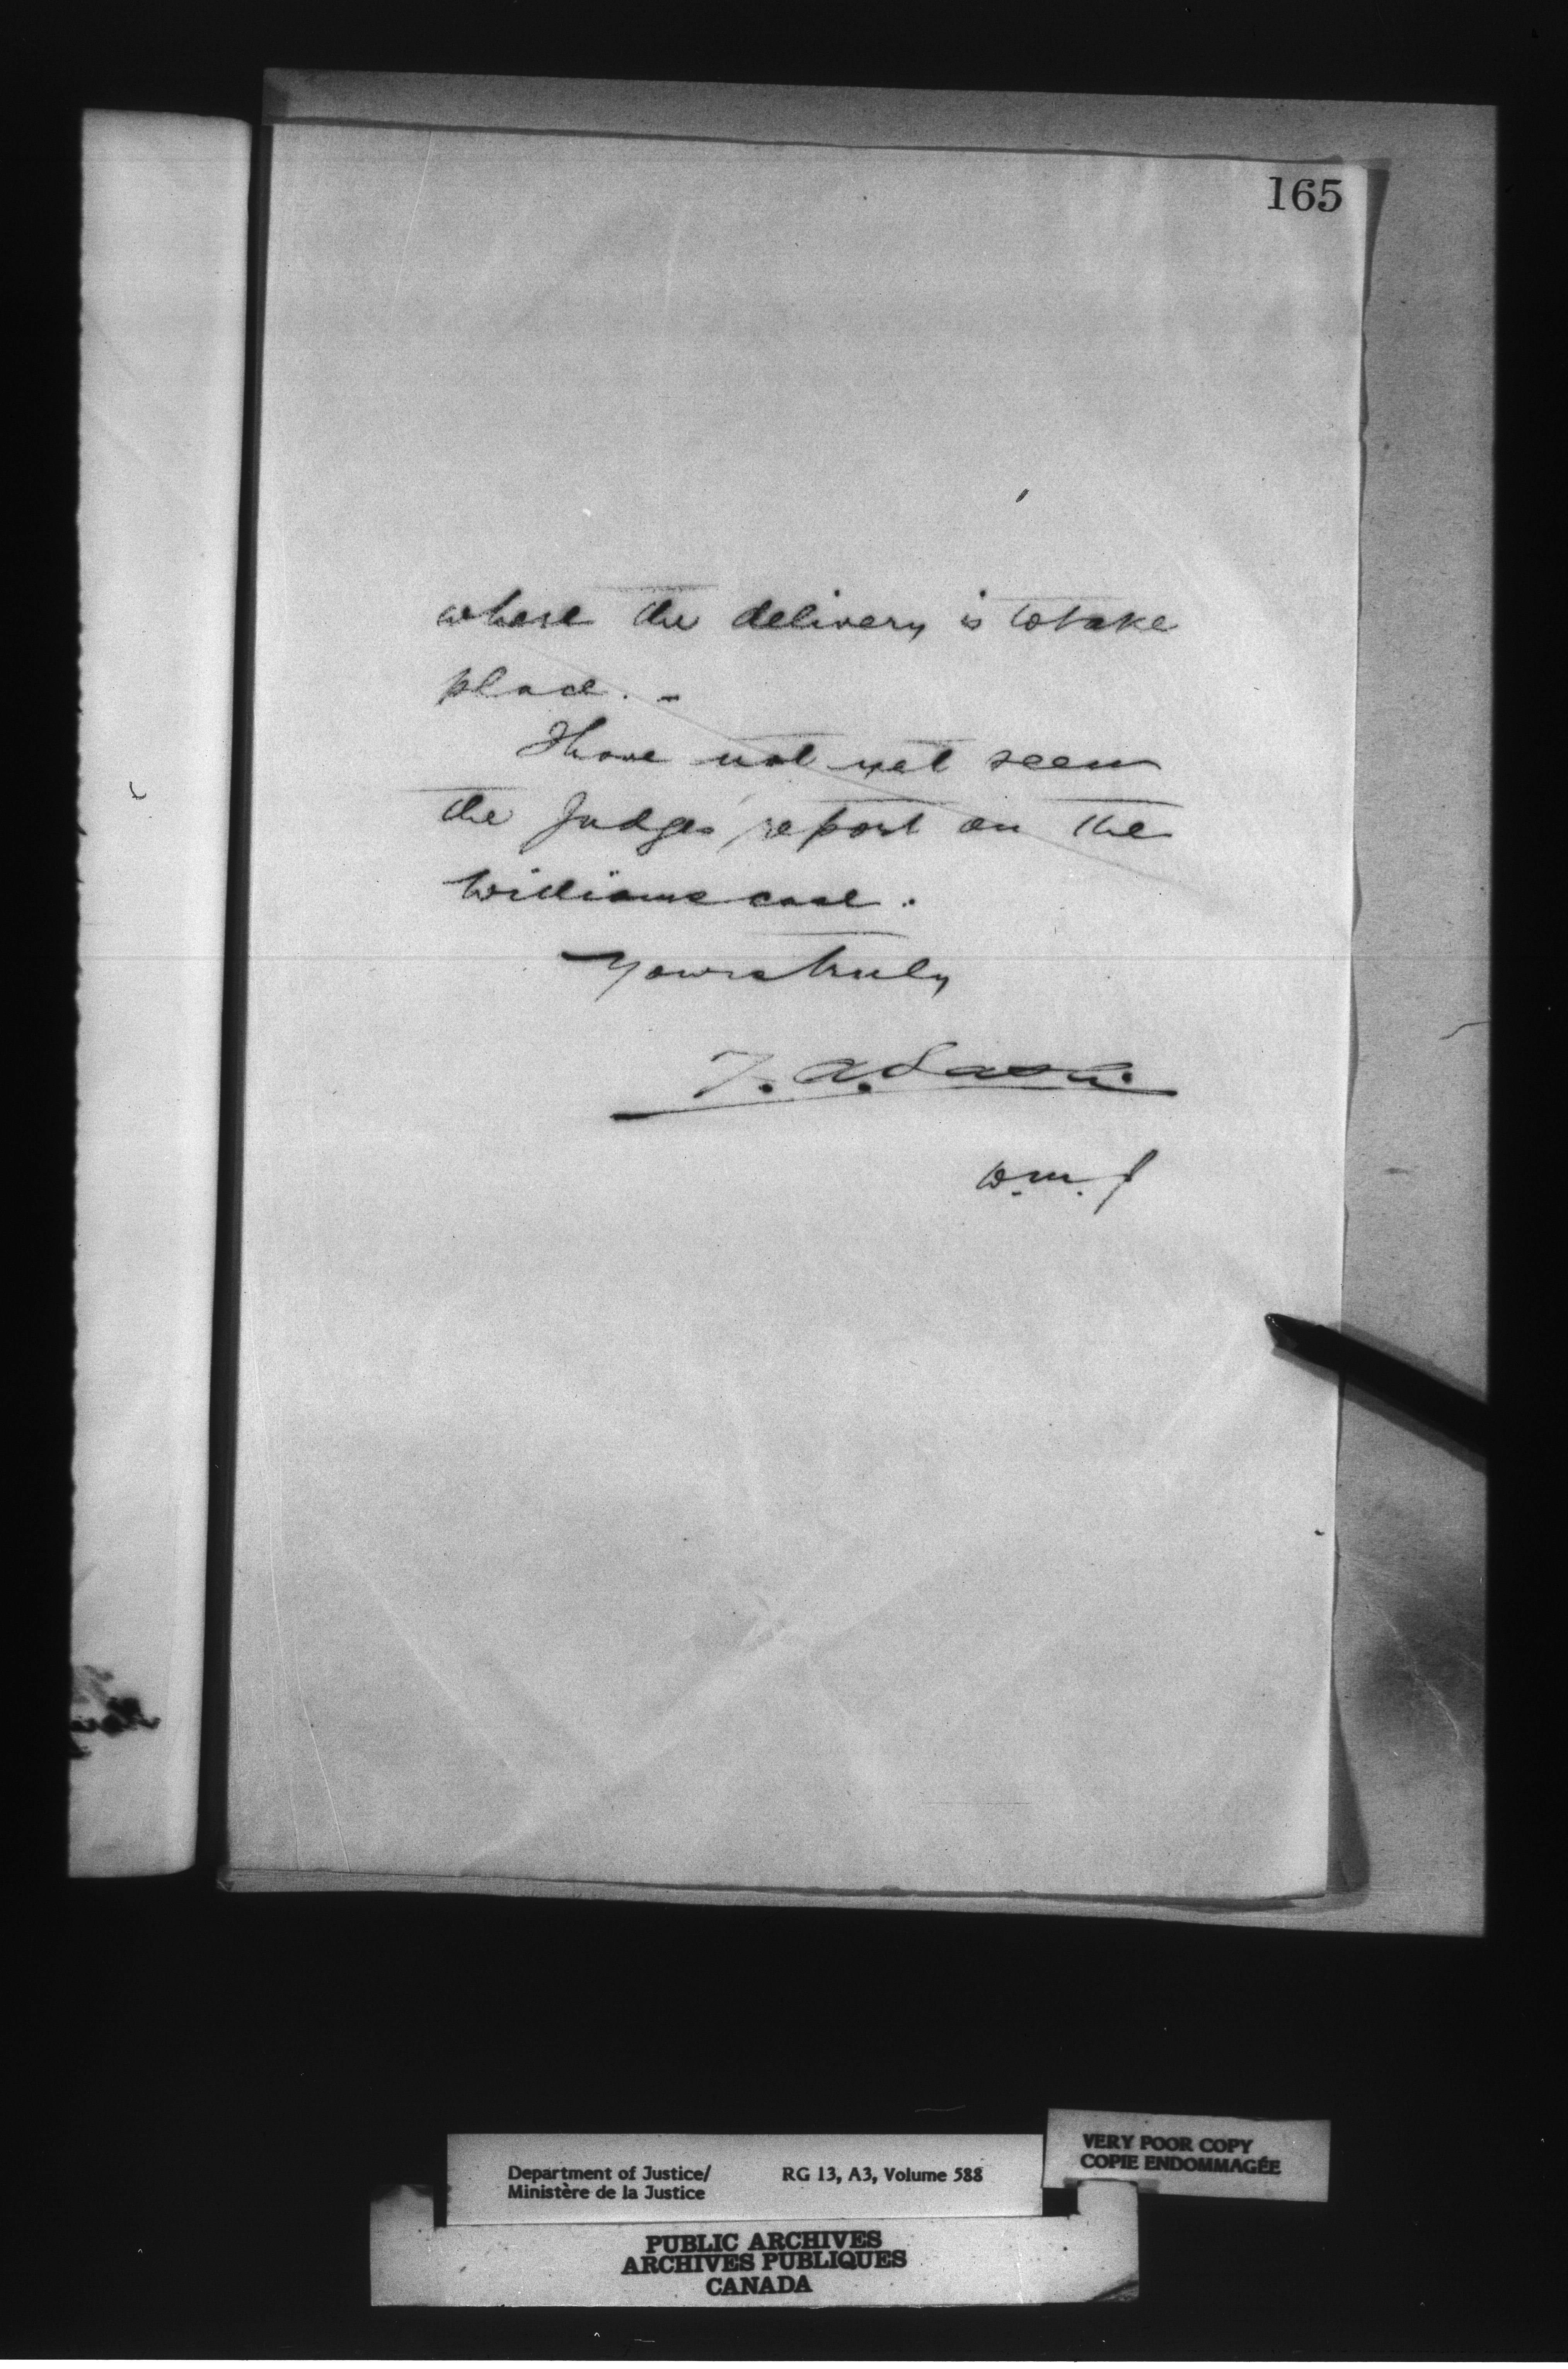 165
where the delivery is to take
place. -
I have not yet seen
the Judges' report on the
Williams case.
Yours truly
Z. A. Lash.
W. M. J
Department of Justice/ RG 13, A3, Volume 588
Ministère de la Justice
VERY POOR COPY
COPIE ENDOMMAGÉE
PUBLIC ARCHIVES
ARCHIVES PUBLIQUES
CANADA